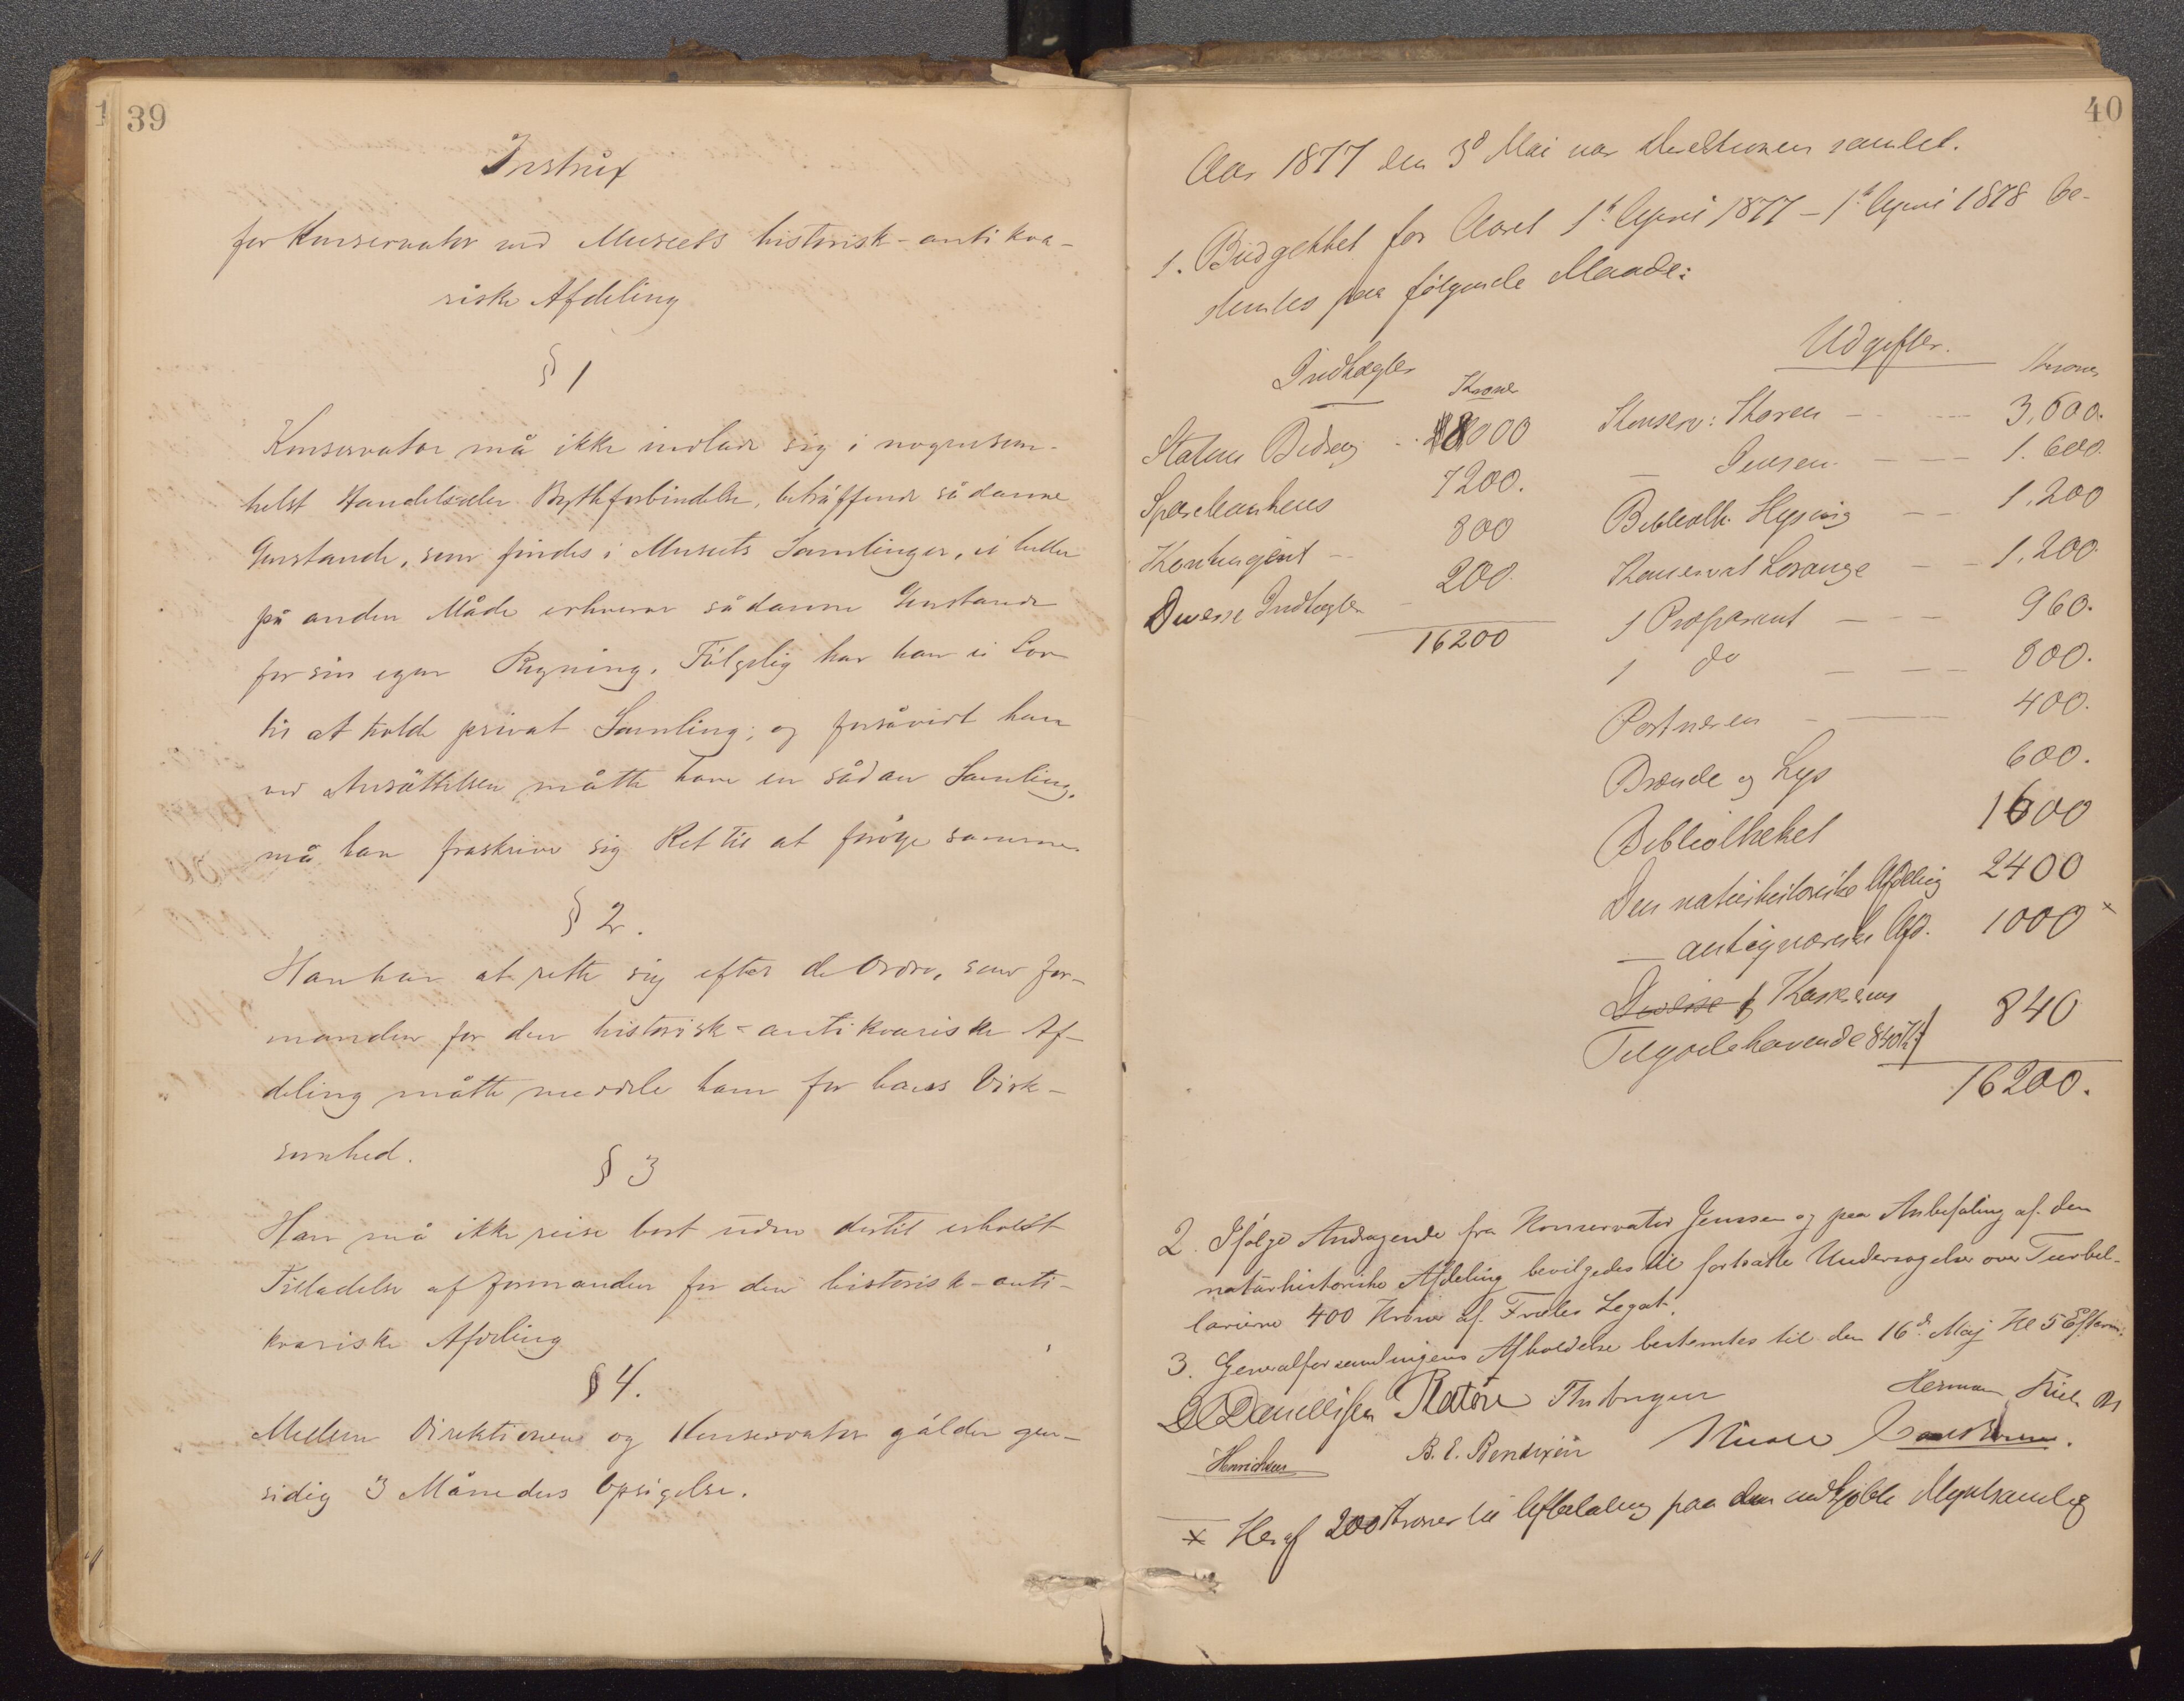 39
Instrux
for Konservator ved Museets historisk-antikva-
riske Afdeling
§ 1
Konservator må ikke indlade sig i nogensom-
helst Handels eller Bytteforbindelse, beträffende sådanne
Genstande, som findes i Museets Samlinger, ei heller
på anden Måde erhverve sådanne Genstande
for sin egen Regning. Fölgelig har han ei Lov
til at holde privat Samling; og forsåvidt han
ved Ansättelsen måtte have en sådan Samling,
må han fraskrive sig Ret til at foröge samme.
§ 2.
Han har at rette sig efter de Ordre, som For-
manden for den historisk-antikvariske Af-
deling måtte meddele ham for hans Virk-
somhed.
§ 3
Han må ikke reise bort uden dertil erholdt
Tilladelse af Formanden for den historisk-anti-
kvariske Afdeling
§ 4.
Mellem Direktionen og Konservator gälder gen-
sidig 3 Måneders Opsigelse.
40
Aar 1877 den 3d Mai var Direktionen samlet.
1. Budgettet for Aaret 1st April 1877 – 1st April 1878 be-
stemtes paa følgende Maade:
Indtægter
Kroner
Statens Bidrag - 8000
Sparebankens 7200.
Kontingent - 800
Diverse Indtægter - 200.
16200
Udgifter.
Kroner
Konserv: Koren - 3,600.
— Jensen - 1.600.
Bibliothk. Hysing - 1,200
Konservat Lorange - 1,200.
1 Præparant - 960.
1 do - 800.
Portneren - 400.
Brænde og Lys 600.
Bibliotheket 1600
Den naturhistoriske Afdeling 2400
— antiqvariske Afd. 1000 x
Diverse Kasserens
Tilgodehavende 840 Kr 840
16200.
2. Ifølge Andragende fra Konservator Jenssen og paa Anbefaling af den
naturhistoriske Afdeling bevilgedes til fortsatte Undersøgelser over Turbel-
larierne 400 Kroner af Frieles Legat.
3. Generalforsamlingens Afholdelse bestemtes til den 16d Maj Kl 5 Efterm:
D C Danielssen
Herman Friele
Henrichsen B. E. Bendixen
x Heraf 200 Kroner til Afbetaling paa den indkjøbte Myntsamling